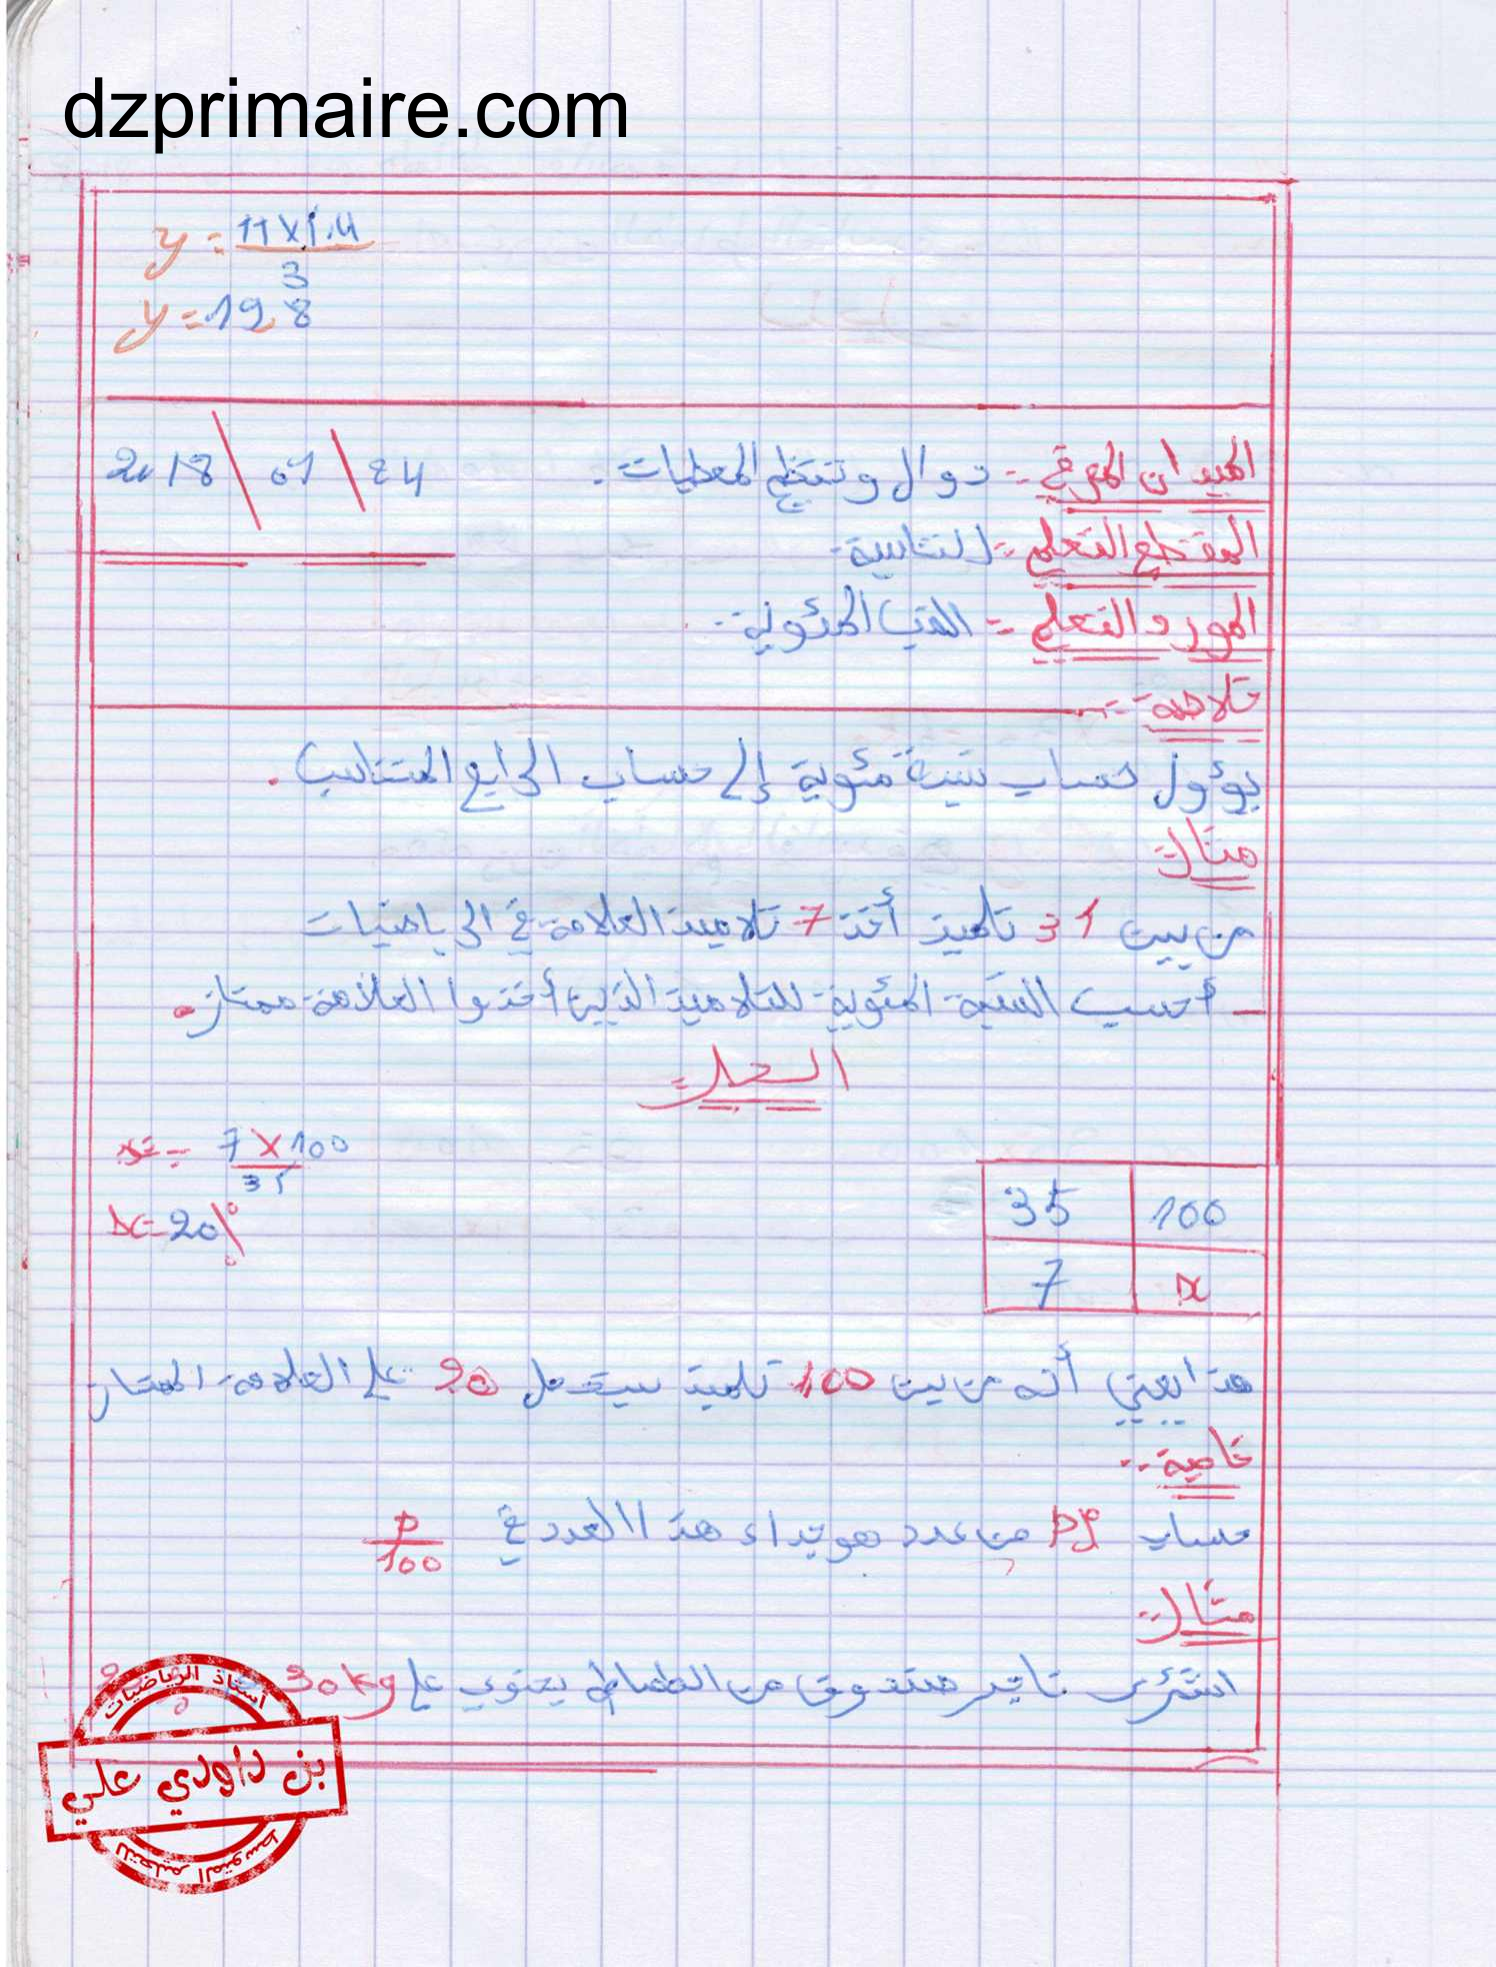 dzprimaire.com
y = 11×1.4 / 3
y = 19,8
الميدان المعرفي :- دوال وتنظيم المعطيات .
2018 \ 01 \ 24
المقطع التعلمي :- التناسبية .
المورد التعلمي :- النسب المئوية .
خلاصة :-
يؤول حساب نسبة مئوية إلى حساب الرابع المتناسب .
مثال :-
من بين 31 تلميذ أخذ 7 تلاميذ العلامة في الرياضيات
- أحسب النسبة المئوية للتلاميذ الذين أخذوا العلامة ممتاز .
الحل :-
x = 7 × 100 / 35
x = 20%
35 | 100
7 | x
هذا يعني أنه من بين 100 تلميذ سيتحصل 20 على العلامة الممتاز
خاصية :-
حساب p% من عدد هو جداء هذا العدد في p/100
مثال :-
اشترى تاجر صندوق من الطماطم يحتوي على 30kg
أستاذ الرياضيات
بن داودي علي
للتعليم المتوسط